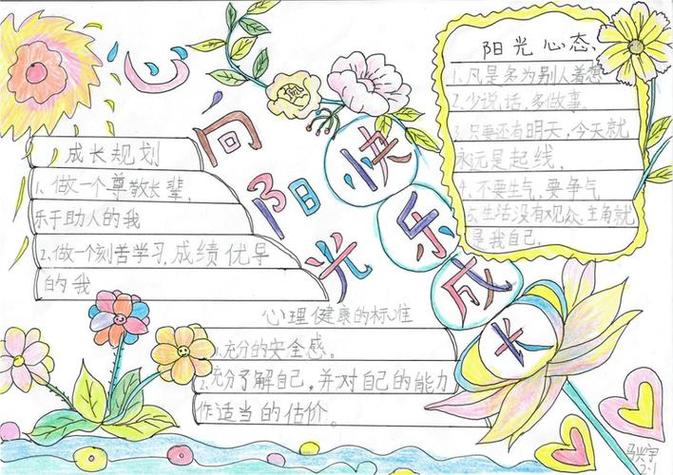 心向阳光
快乐成长
成长规划
1.做一个尊敬长辈,
乐于助人的我
2.做一个刻苦学习,成绩优异
的我
阳光心态
1.凡是多为别人着想
2.少说话,多做事.
3.只要还有明天,今天就
永远是起线.
4.不要生气,要争气
5.生活没有观众,主角就
是我自己.
心理健康的标准
1.充分的安全感。
2.充分了解自己,并对自己的能力
作适当的估价。
2.1